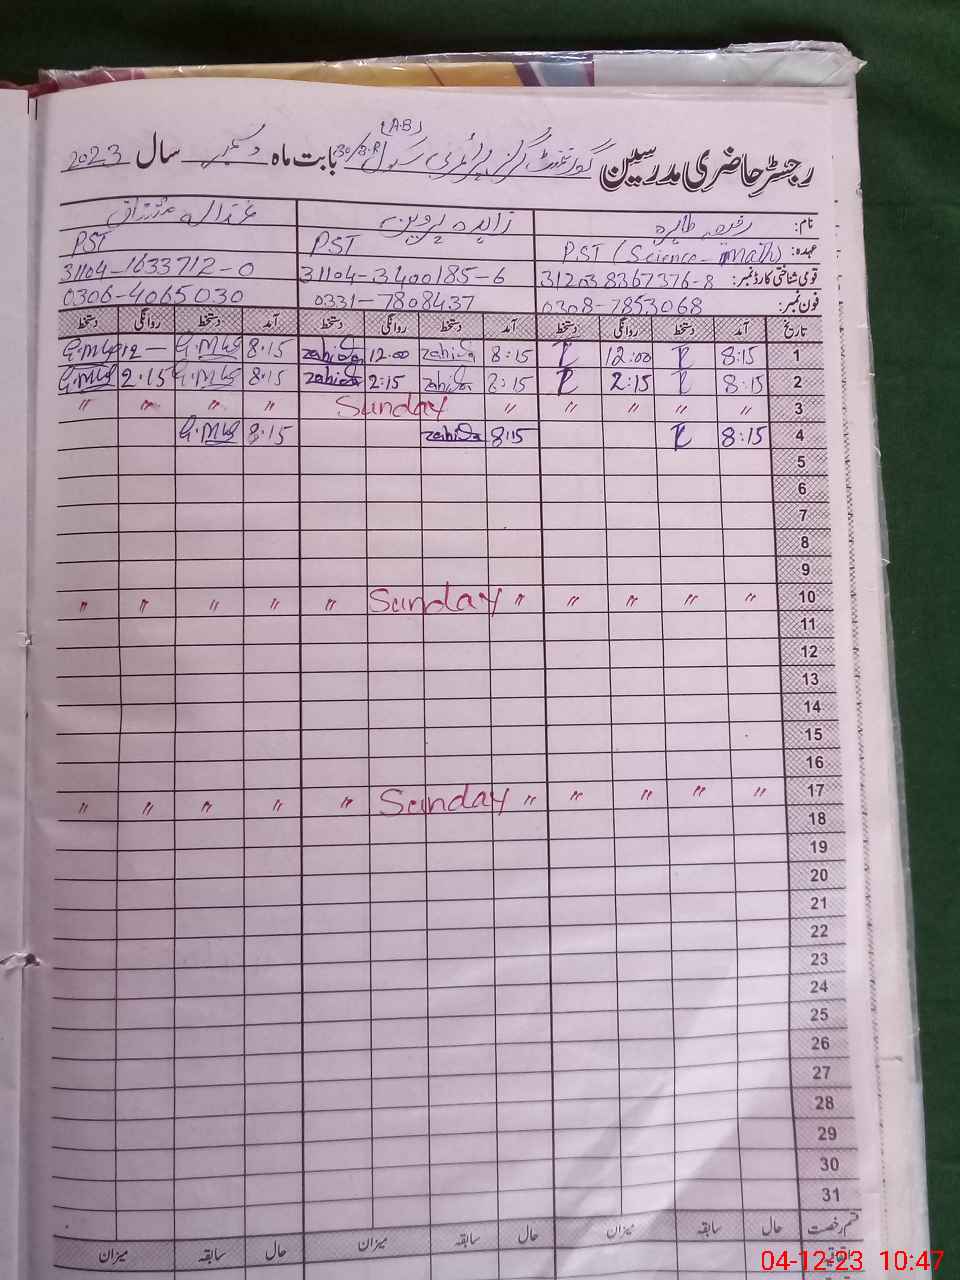 (A.B)
رجسٹر حاضری مدرسین گورنمنٹ گرلز پرائمری سکول 30/3.R بابت ماہ دسمبر سال 2023
نام: رفیعہ طاہرہ زاہدہ پروین غزالہ
عہدہ: PST (Science-math) PST PST
قومی شناختی کارڈ نمبر: 312038367376-8 31104-3400185-6 31104-1633712-0
فون نمبر: 0308-7853068 0331-7808437 0306-4065030
تاریخ آمد دستخط روانگی دستخط آمد دستخط روانگی دستخط آمد دستخط روانگی دستخط
1 8:15 R 12:00 R 8:15 zahida 12.00 zahida 8.15 12 —
2 8:15 R 2:15 R 8:15 zahida 2:15 zahida 8.15 2.15
3 〃 〃 〃 〃 〃 Sunday 〃 〃 〃 〃
4 8:15 R 8:15 zahida 8.15
5
6
7
8
9
10 〃 〃 〃 〃 〃 Sunday 〃 〃 〃 〃 〃
11
12
13
14
15
16
17 〃 〃 〃 〃 〃 Sunday 〃 〃 〃 〃 〃
18
19
20
21
22
23
24
25
26
27
28
29
30
31
قسم رخصت حال سابقہ میزان حال سابقہ میزان حال سابقہ میزان
04-12-23 10:47